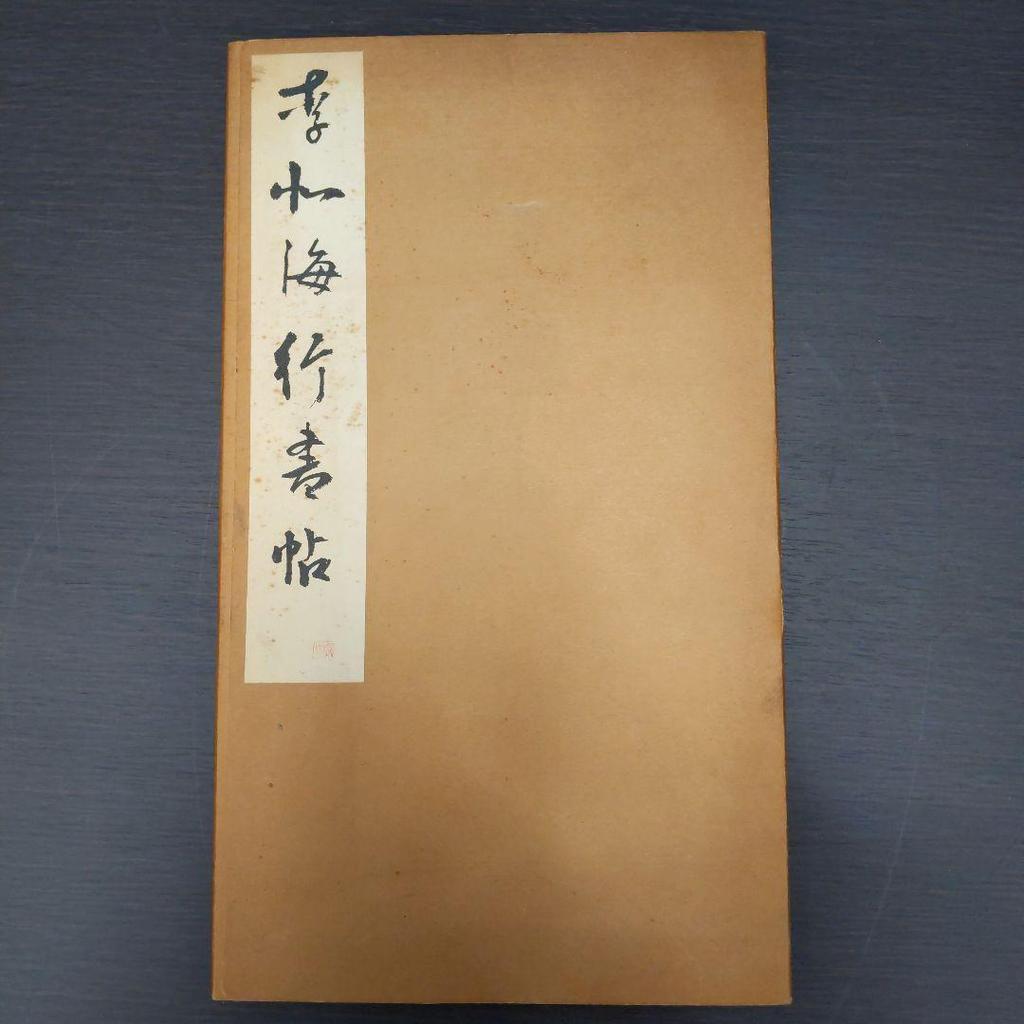 李北海行書帖